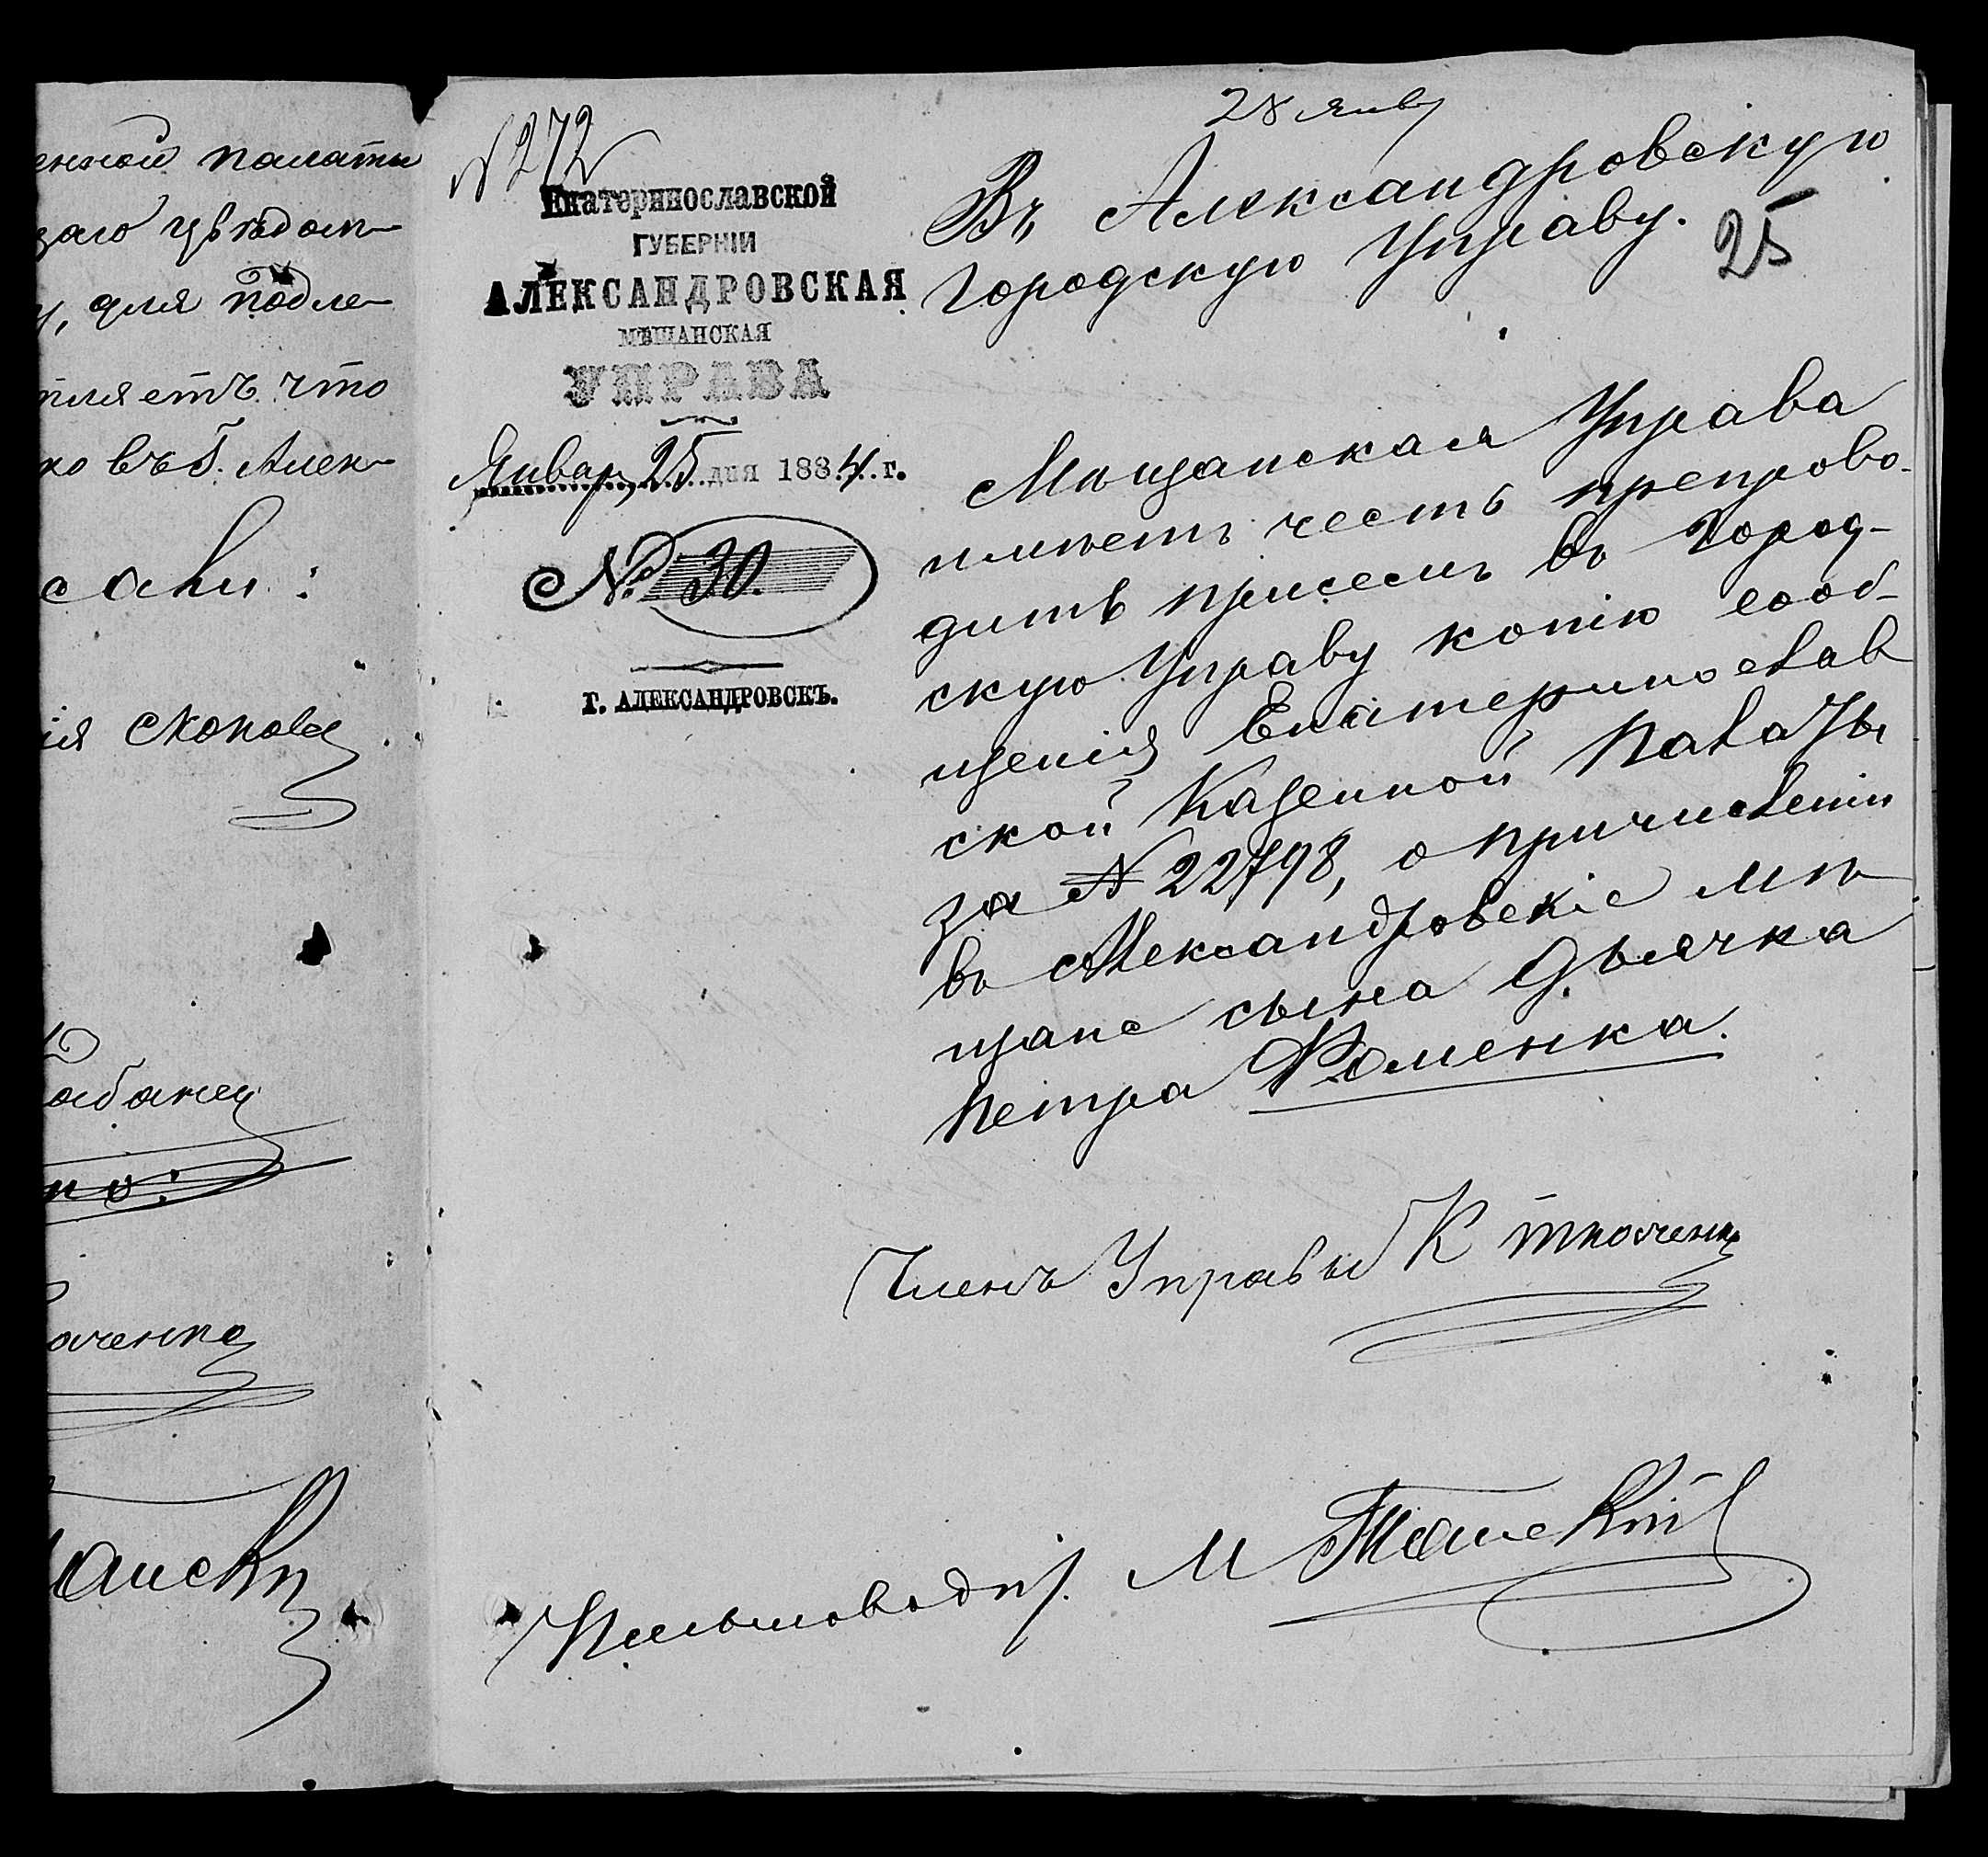 енной палаты
для подле-
что
въ г. Алек-
№ 272
Екатеринославской
ГУБЕРНІИ
АЛЕКСАНДРОВСКАЯ
МѢЩАНСКАЯ
УПРАВА
Январ, 25 дня 1884 г.
№ 30.
Г. АЛЕКСАНДРОВСКЪ.
28 янв
Въ Александровскую
Городскую Управу.
25
Мѣщанская Управа
имѣетъ честь препрово-
дить при семъ въ Город-
скую Управу копію сооб-
щенія Екатеринослав
ской Казенной Палаты
за № 22798, о причисленіи
въ Александровскіе мѣ
щане сына дьячка
Петра Фоменка.
Членъ Управы К Ткаченко
Письмовод